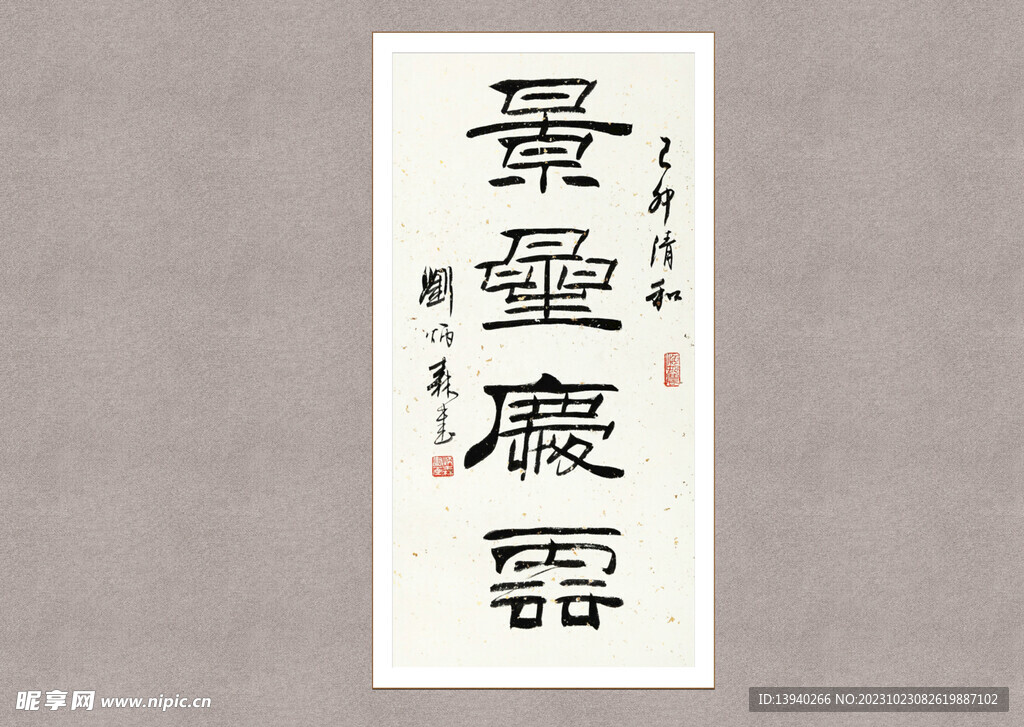 己卯清和
景曐慶雲
劉炳森書
昵享网 www.nipic.cn
ID:13940266 NO:20231023082619887102